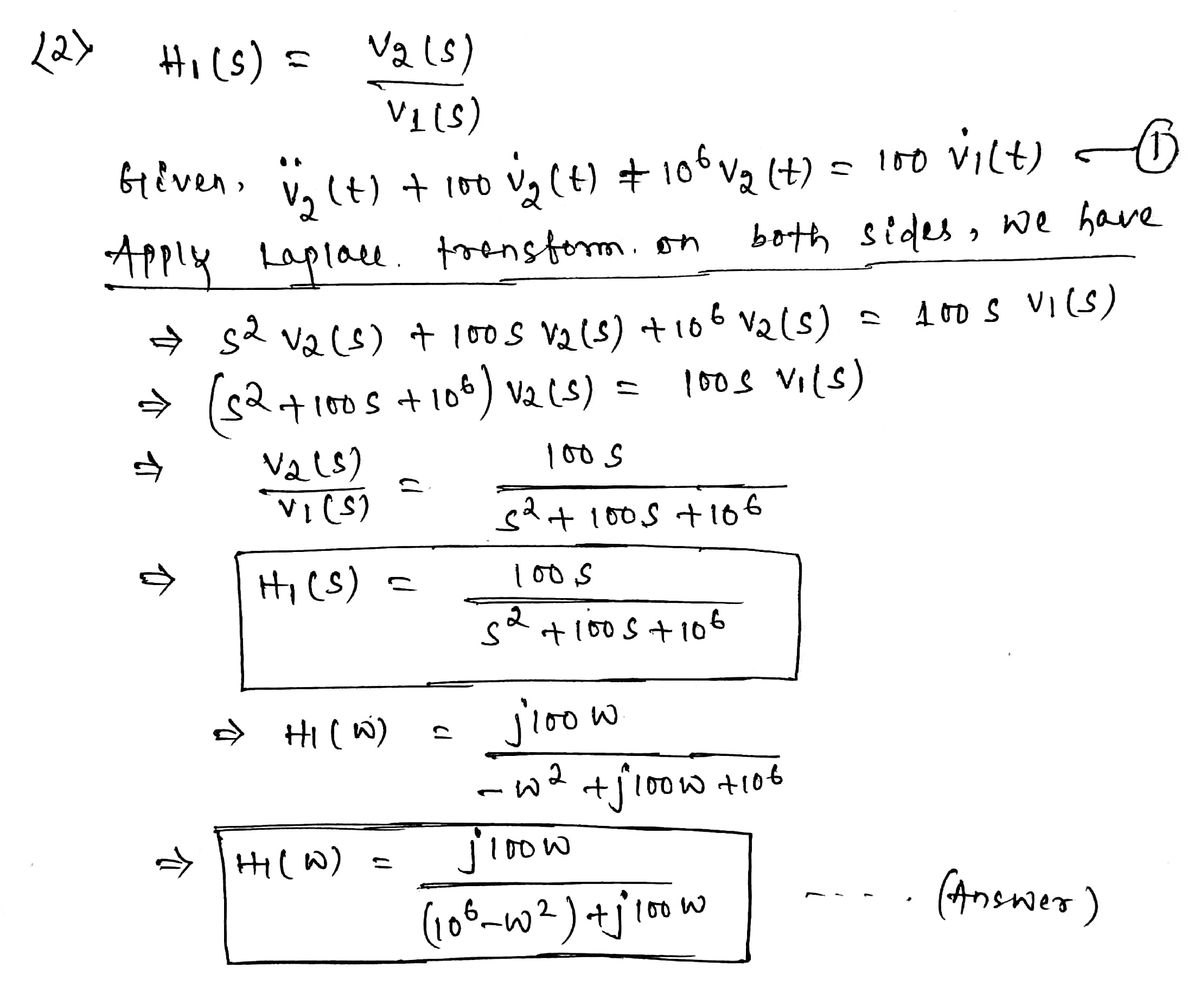 <2> H₁(s) = V₂(s) / V₁(s)
Given, v̈₂(t) + 100 v̇₂(t) + 10⁶ v₂(t) = 100 v̇₁(t) — ①
Apply Laplace. transform. on both sides, we have
⇒ s² V₂(s) + 100s V₂(s) + 10⁶ V₂(s) = 100 s V₁(s)
⇒ (s² + 100s + 10⁶) V₂(s) = 100s V₁(s)
⇒ V₂(s) / V₁(s) = 100s / s² + 100s + 10⁶
⇒ H₁(s) = 100s / s² + 100s + 10⁶
⇒ H₁(ω) = j100ω / -ω² + j100ω + 10⁶
⇒ H₁(ω) = j100ω / (10⁶-ω²) + j100ω ---- . (Answer)